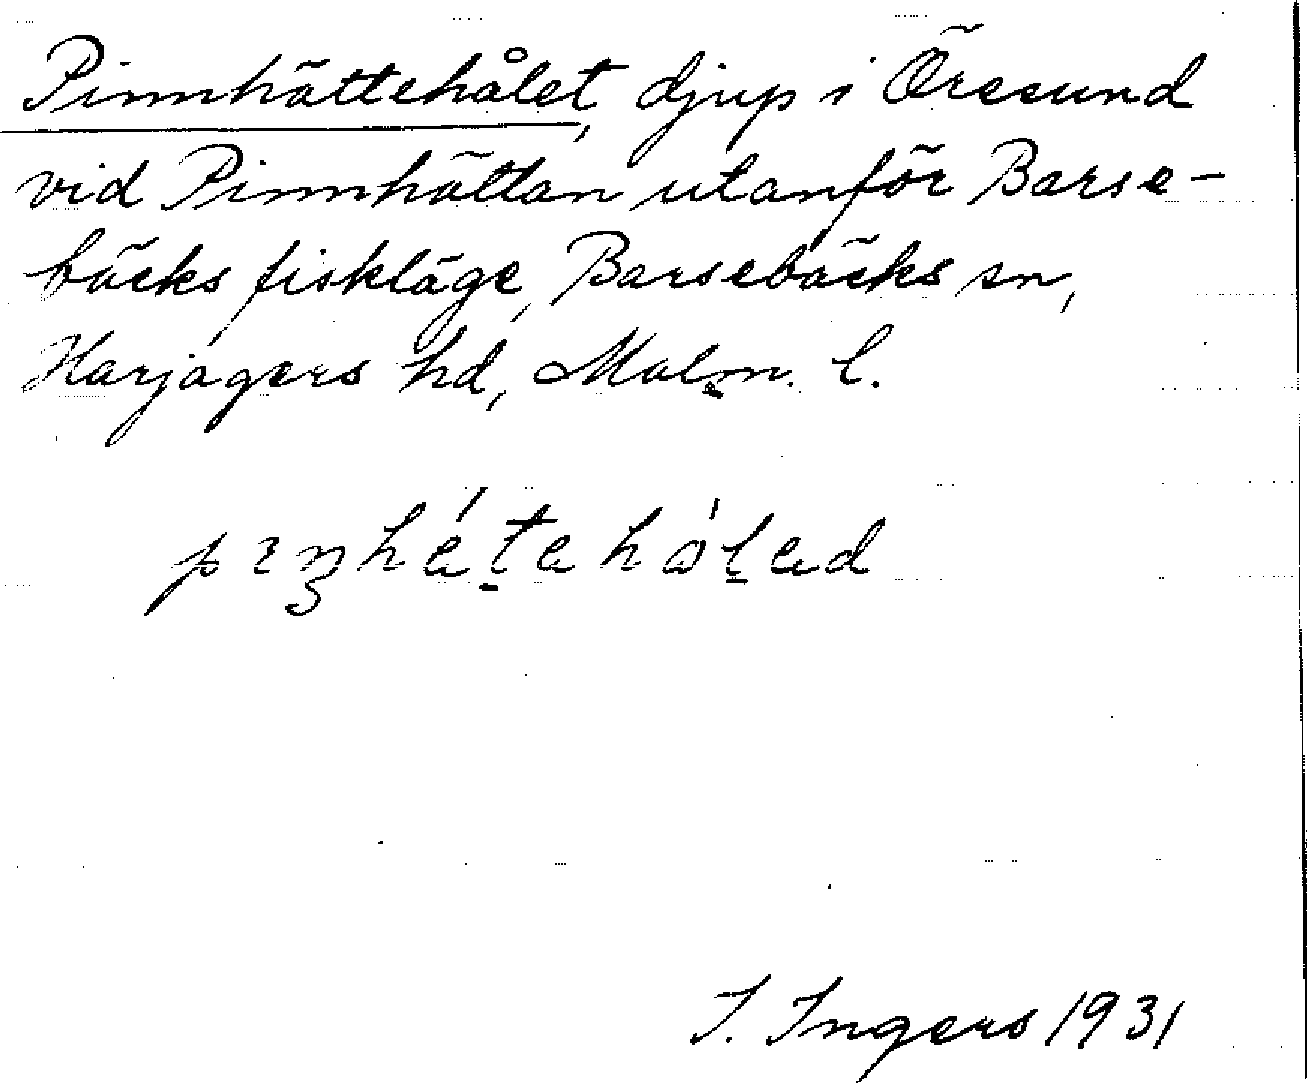 Pinnhättehålet, djup i Öresund
vid Pinnhättan utanför Barse-
bäcks fiskläge, Barsebäcks sn,
Harjagers hd, Malm. l.
I. Ingers 1931